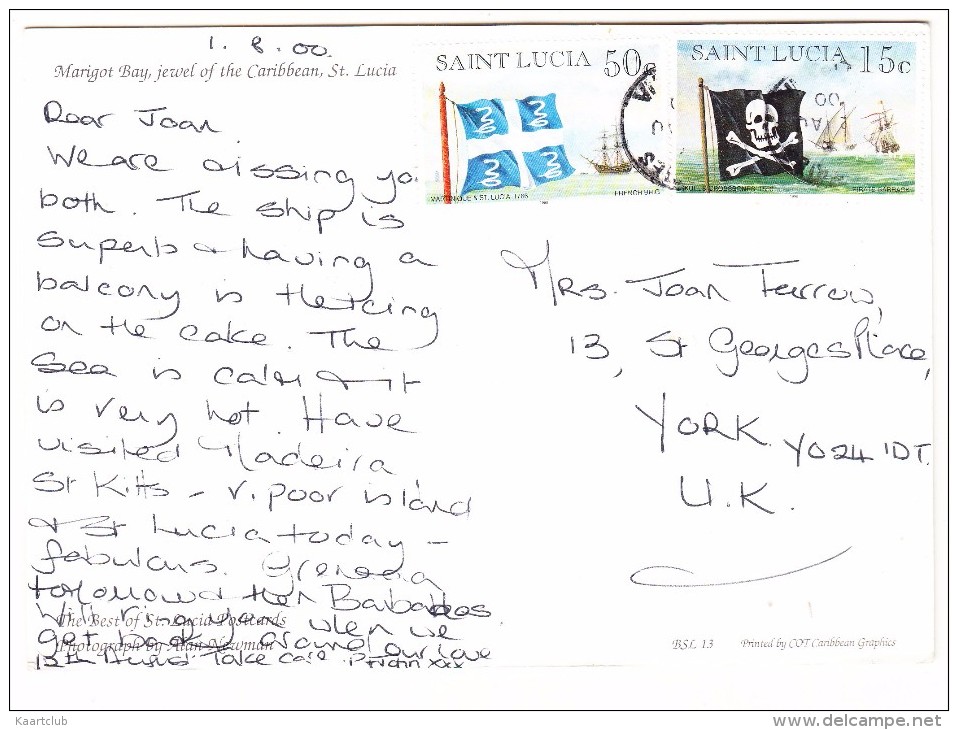 1. 8. 00.
Marigot Bay, jewel of the Caribbean, St. Lucia
SAINT LUCIA 50c
MARTINIQUE & ST. LUCIA 1766
FRENCH BRIG
SAINT LUCIA 15c
SKULL & CROSSBONES
PIRATE
Dear Joan
We are missing you
both. The ship is
superb & having a
balcony is the icing
on the cake. The
Sea is calm & it
is very hot. Have
visited Madeira
St Kitts - v. poor island
& St Lucia today -
fabulous. Grenada
tomorrow then Barbados
Will ring when we
get back around our love
12th Take care. xxx
Mrs. Joan Furrow,
13, St Georges Place,
YORK. YO24 1DT.
U.K.
The Best of St. Lucia Postcards
Photograph by Alan Newman
BSL 13 Printed by COT Caribbean Graphics
Kaartclub
www.delcampe.net